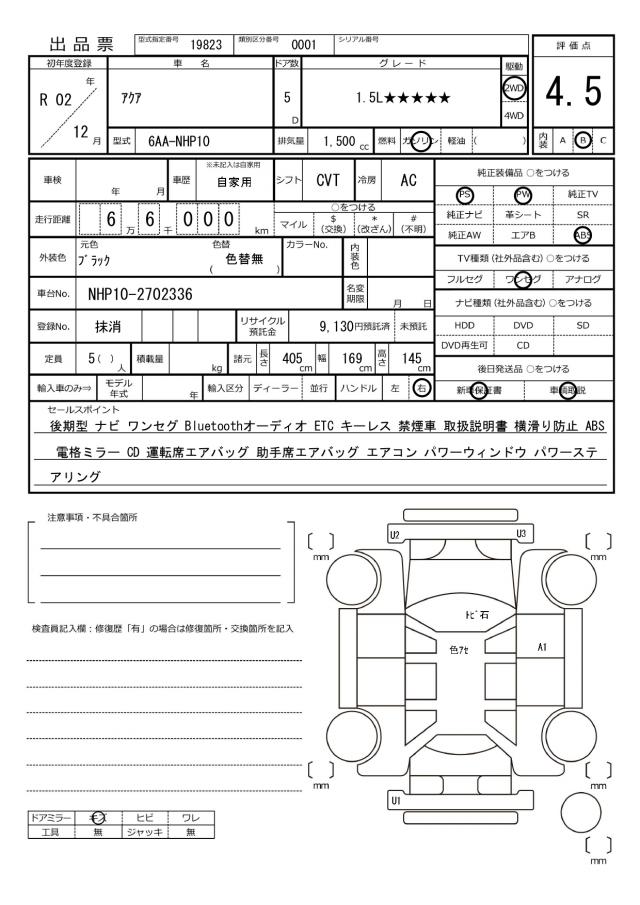 出品票 型式指定番号 19823 類別区分番号 0001 シリアル番号
評価点
4.5
内装 A B C
初年度登録 車名 ドア数 グレード 駆動
R 02 年 12 月
アクア 5 D 1.5L★★★★★ 2WD 4WD
型式 6AA-NHP10 排気量 1,500 cc 燃料 ガソリン 軽油 ( )
車検 年 月 車歴 ※未記入は自家用 自家用 シフト CVT 冷房 AC
走行距離 6 万 6 千 0 0 0 km
○をつける
マイル $ (交換) * (改ざん) # (不明)
外装色 元色 ブラック 色替 ( 色替無 ) カラーNo. 内装色
車台No. NHP10-2702336 名変期限 月 日
登録No. 抹消 リサイクル預託金 9,130円預託済 未預託
定員 5( ) 人 積載量 kg 諸元 長さ 405 cm 幅 169 cm 高さ 145 cm
輸入車のみ⇒ モデル年式 年 輸入区分 ディーラー 並行 ハンドル 左 右
純正装備品 ○をつける
PS PW 純正TV
純正ナビ 革シート SR
純正AW エアB ABS
TV種類 (社外品含む) ○をつける
フルセグ ワンセグ アナログ
ナビ種類 (社外品含む) ○をつける
HDD DVD SD
DVD再生可 CD
後日発送品 ○をつける
新車保証書 車輌取説
セールスポイント
後期型 ナビ ワンセグ Bluetoothオーディオ ETC キーレス 禁煙車 取扱説明書 横滑り防止 ABS
電格ミラー CD 運転席エアバッグ 助手席エアバッグ エアコン パワーウィンドウ パワーステ
アリング
注意事項・不具合箇所
検査員記入欄：修復歴「有」の場合は修復箇所・交換箇所を記入
ドアミラー キズ ヒビ ワレ
工具 無 ジャッキ 無
U2 U3
[ ] mm [ ] mm
トビ石
色アセ A1
[ ] mm [ ] mm
U1
[ ] mm